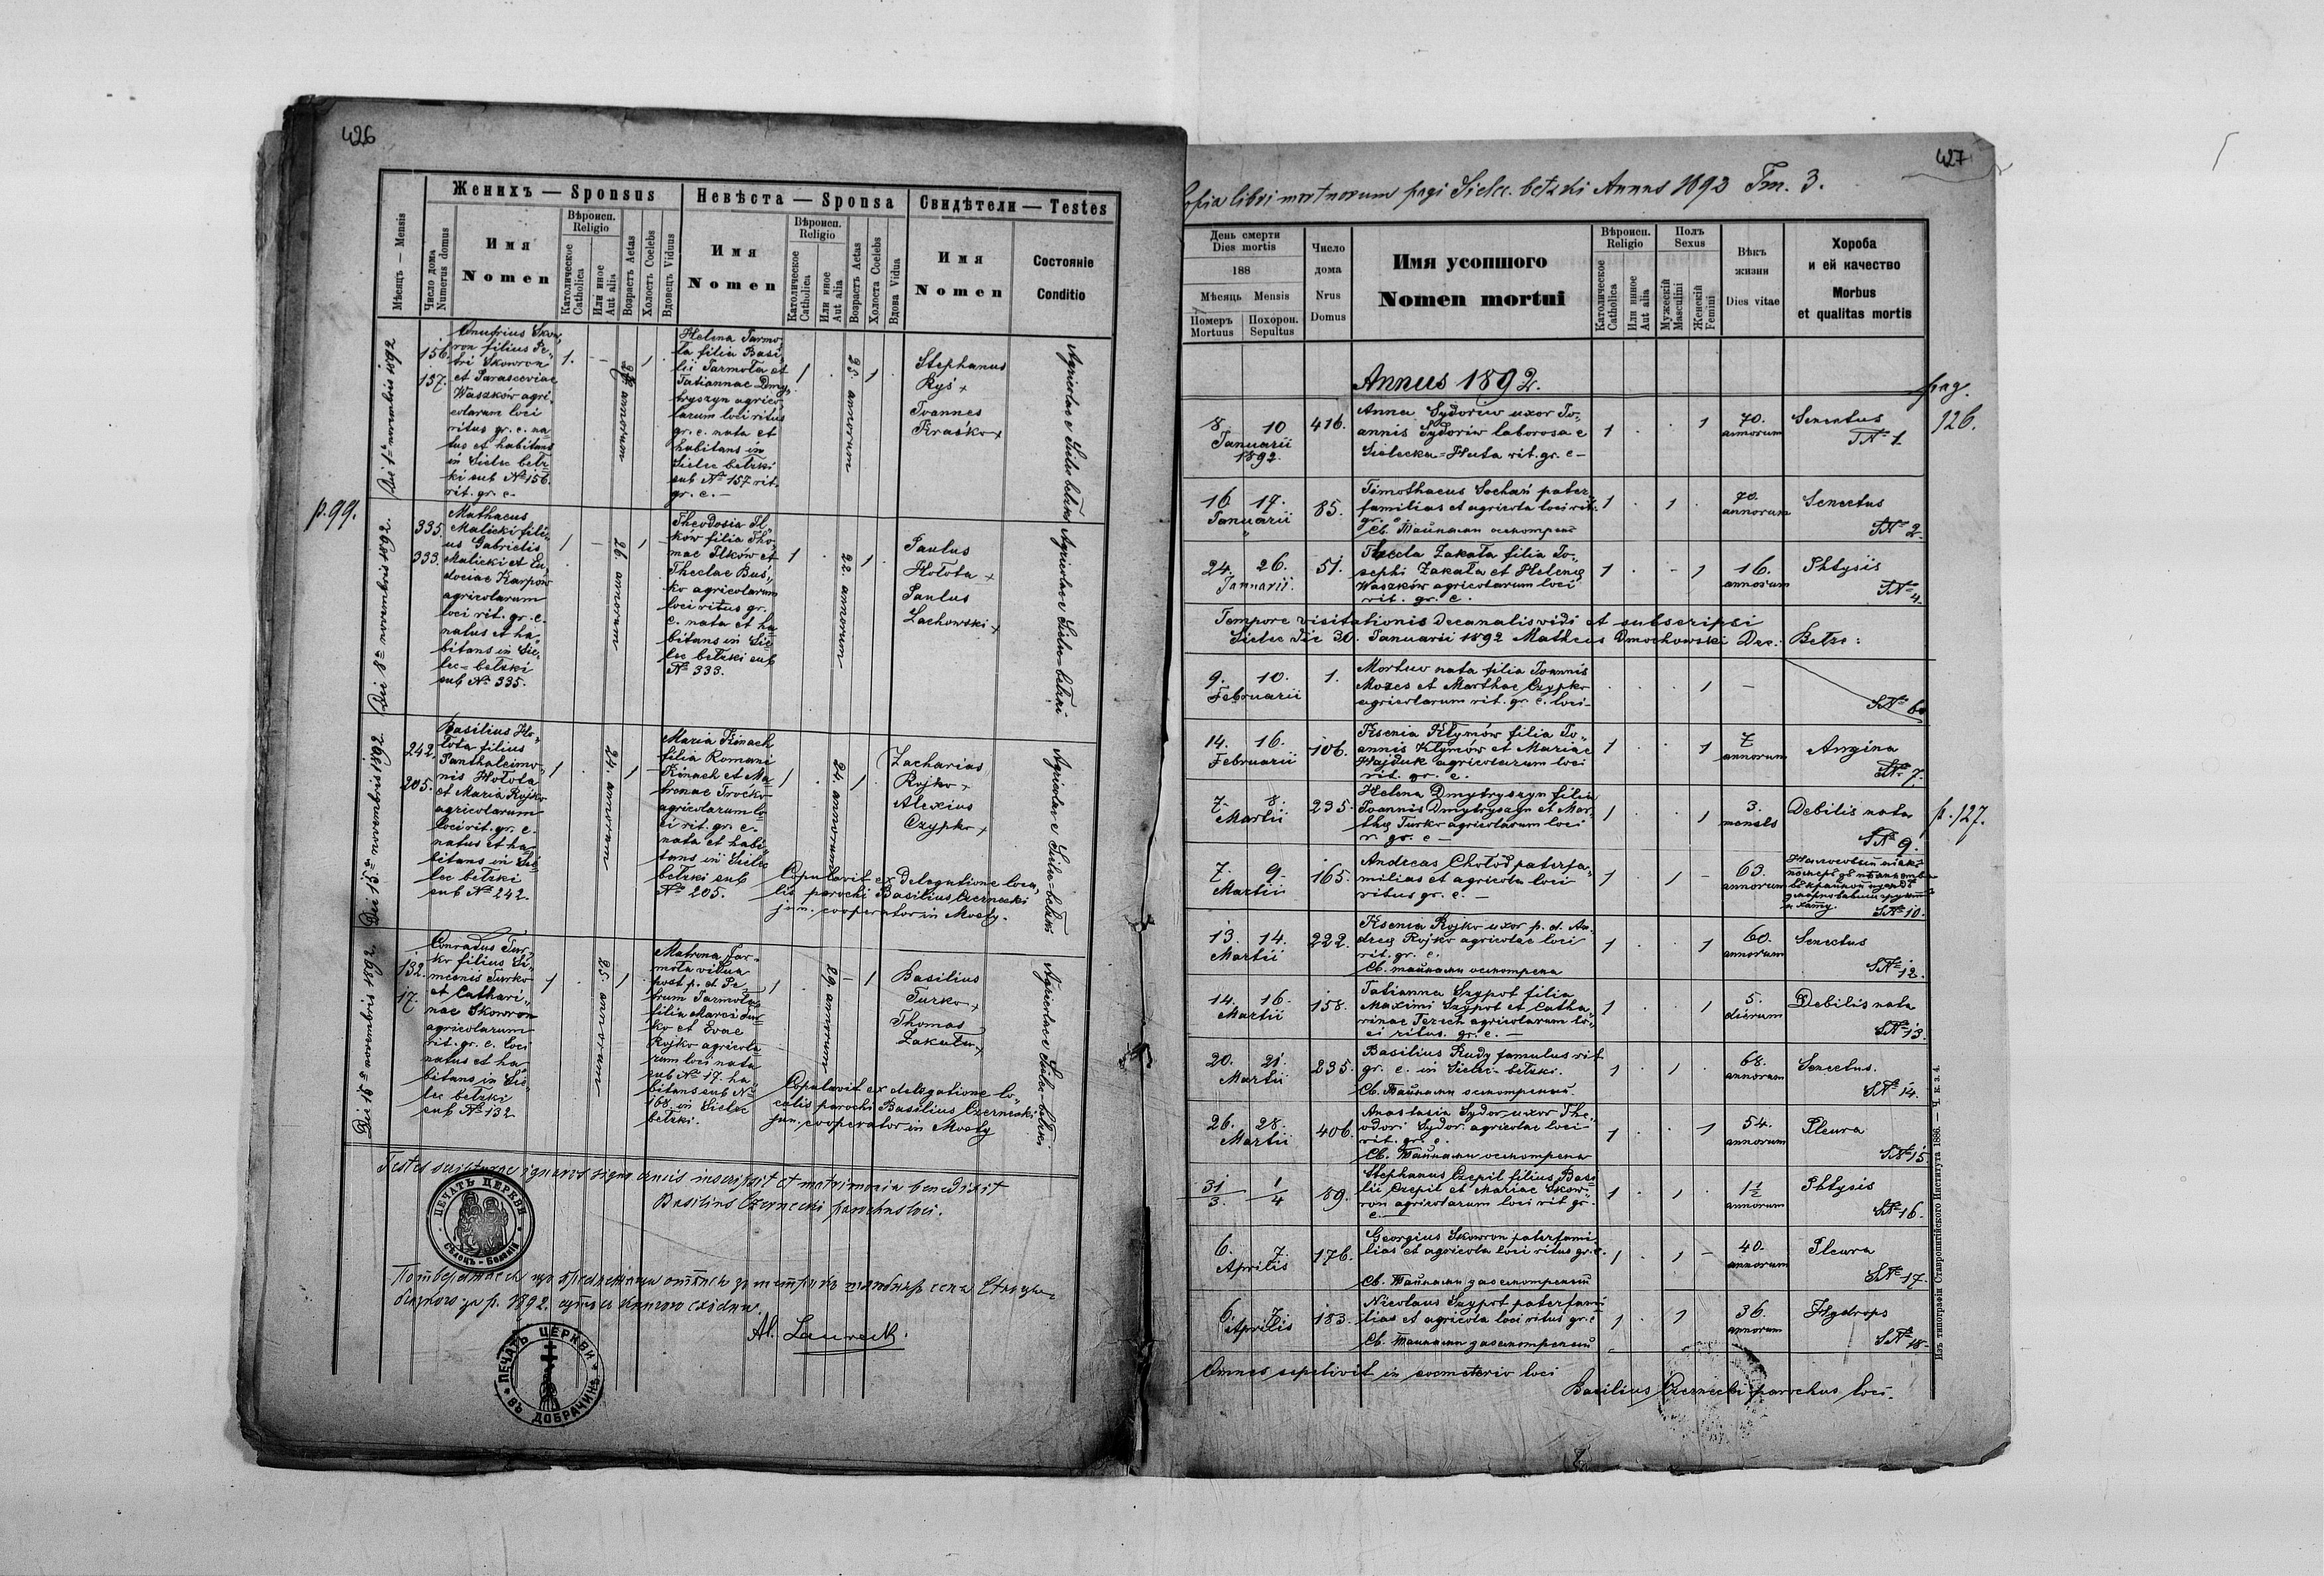 426
Женихъ — Sponsus
Невѣста — Sponsa
Свидѣтели — Testes
Мѣсяцъ — Mensis
Число дома
Numerus domus
Имя
Nomen
Вѣроисп.
Religio
Католическое
Catholica
Или иное
Aut alia
Возрастъ Aetas
Холостъ Coelebs
Вдовецъ Viduus
Имя
Nomen
Вѣроисп.
Religio
Католическое
Catholica
Или иное
Aut alia
Возрастъ Aetas
Холоста Coelebs
Вдова Vidua
Имя
Nomen
Состояніе
Conditio
Die 1= novembris 1892
156.
157.
Onufrius Skow„
ron filius Pe„
tri Skowron
et Parasceviae
Waszkow agri„
colarum loci
ritus gr. c. na
tus et habitans
in Sielec bełz
ki sub № 156.
rit. gr. c.
1.
annorum
1
Helena Jarmo„
ła filia Basi„
lii Jarmoła et
Tatiannae Dmy„
tryszyn agrico„
larum loci ritus
gr. c. nata et
habitans in
Sielec bełzki
sub № 157 rit.
gr. c. —
1
25. annorum
1
Stephanus
Ryś +
Ioannes
Kraśko +
Agricolae e Sielec bełzki
p. 99.
Die 8= novembris 1892.
335.
333.
Mathaeus
Malicki fili„
us Gabrielis
Malicki et Eu„
dociae Karpow
agricolarum
loci rit. gr. c.
natus et ha„
bitans in Sie„
lec = bełzki
sub № 335.
1
26. annorum
1
Theodosia Il„
ków filia Tho„
mae Ilków et
Theclae Buś„
ko agricolarum
loci ritus gr.
c. nata et ha
bitans in Sie
lec bełzki sub
№ 333.
1
22. annorum
1
Paulus
Hołota +
Paulus
Lachowski +
Agricolae e Sielec = bełzki
Die 13= novembris 1892
242.
205.
Basilius Ho„
łota filius
Panthaleimo„
nis Hołota
et Maria Rojko
agricolarum
loci rit. gr. c.
natus et ha„
bitans in Sie
lec bełzki
sub № 242.
1
24. annorum
1
Maria Kinach
filia Romani
Kinach et Ma
tronae Troćko
agricolarum lo
ci rit. gr. c.
nata et habi„
tans in Sielec
bełzki sub
№ 205.
1
24. annorum
1
Zacharias
Rojko +
Alexius
Czypko +
Copulavit ex delegatione loca„
lis parochi Basilius Czernecki
jun. cooperator in Mosty.
Agricolae e Sielec = bełzki
novembris 1892
132.
17.
Conradus Tur„
ko filius Si„
meonis Turko
et Cathari„
nae Skowron
agricolarum
rit. gr. c. loci
natus et ha„
bitans in Sie„
lec bełzki
sub № 132.
1
25. annorum
1
Matrona Jar„
moła vidua
post p. d. Pe„
trum Jarmoła
filia Marci Tur„
ko et Evae
Rojko agricola„
rum loci nata
sub № 17. ha„
bitans sub №
168 in Sielec
bełzki.
1
29. annorum
1
Basilius
Turko +
Thomas
Zakała +
Copulavit ex delegatione lo„
calis parochi Basilius Czernecki
jun. cooperator in Mosty
Agricolae Sielec = bełzki.
Testes scripturae ignaros signo crucis inscripsit et matrimonia benedixit
Basilius Czernecki parochus loci.
ПЕЧАТЬ ЦЕРКВИ
за р. 1892.
Al. Laureck.
ПЕЧАТЬ ЦЕРКВИ
ВЪ ДОБРАЧИНѢ
427
Copia libri mortuorum pagi Sielec bełzki Annus 1892 Tm. 3.
День смерти
Dies mortis
188
Мѣсяць Mensis
Померъ
Mortuus
Похорон.
Sepultus
Число
дома
Nrus
Domus
Имя усопшого
Nomen mortui
Вѣроисп.
Religio
Католическое
Catholica
Или инное
Aut alia
Полъ
Sexus
Мужескій
Masculini
Женскій
Femini
Вѣкъ
жизни
Dies vitae
Хороба
и ей качество
Morbus
et qualitas mortis
Annus 1892.
pag.
126.
8 10
Januarii
1892.
416.
Anna Sydoriw uxor Jo„
annis Sydoriw laborosa e
Sielecka = Huta rit. gr. c —
1 . . 1
70.
annorum
Senectus
№ 1.
16 17.
Januarii
85.
Timothaeus Sochań pater„
familias et agricola loci rit.
gr. c.
1 . 1 .
70.
annorum
Senectus
№ 2.
24. 26.
Januarii.
51.
Thecla Zakała filia Jo„
sephi Zakała et Helenę
Waszków agricolarum loci
rit. gr. c.
1 . . 1
16.
annorum
Phtysis
№ 4.
Tempore visitationis decanalis vidi et subscripsi
Sielec die 30. Januarii 1892 Matheus Dmochowski Dec. Bełzc:
9. 10.
Februarii
1.
Mortuo nata filia Joannis
Mozes et Marthae Czypko
agricolarum rit. gr. c. loci —
. . . 1
—
№ 6
14. 16.
Februarii
106.
Ksenia Kłymów filia Jo„
annis Kłymów et Mariae
Hajduk agricolarum loci
rit. gr. c.
1 . . 1
7
annorum
Angina
№ 7.
7. 8.
Martii
235.
Helena Dmytryszyn filia
Joannis Dmytryszyn et Mar„
thę Turko agricolarum loci
r. gr. c —
1 . . 1
3.
menses
Debilis nata
№ 9.
p. 127.
7. 9.
Martii
165.
Andreas Chołod paterfa„
milias et agricola loci
ritus gr. c. —
1 . 1 —
63.
annorum
№ 10.
13. 14.
Martii
222.
Ksenia Rojko uxor p. d. An„
dreę Rojko agricolae loci
rit. gr. c.
Св. тайнами осмотрена
1 . . 1
60.
annorum
Senectus
№ 12.
14. 16.
Martii
158.
Tatianna Szypot filia
Maximi Szypot et Catha„
rinae Terech agricolarum lo„
ci ritus. gr. c. —
1 . . 1
5.
dierum
Debilis nata
№ 13.
20. 21.
Martii
235.
Basilius Rudy famulus rit
gr. c. in Sielec = bełzki.
Св. Тайнами осмотреный.
1 . 1 .
68.
annorum
Senectus.
№ 14.
26. 28.
Martii
406.
Anastasia Sydor uxor The„
odori Sydor agricolae loci
rit. gr. c.
Св. Тайнами осмотрена
1 . . 1
54.
annorum
Pleura
№ 15.
31/3. 1/4
89.
Stephanus Czepil filius Basi
lii Czepil et Mariae Skow„
ron agricolarum loci rit gr.
c. —
1 . 1 .
1½
annorum
Phtysis
№ 16.
6. 7.
Aprilis
176.
Georgius Skowron paterfami„
lias et agricola loci ritus gr. c.
Св. Тайнами заосмотреный
1 . 1 —
40.
annorum
Pleura
№ 17.
6. 7.
Aprilis
183.
Nicolaus Szypot paterfami
lias et agricola loci ritus gr. c
Св. Тайнами заосмотреный
1 . 1
36.
annorum
Hydrops
№ 18.
Omnes sepelivit in coemeterio loci
Basilius Czernecki parochus loci.
Изъ типографіи Ставропигійского Института 1886. — Ч. к. з. 4.